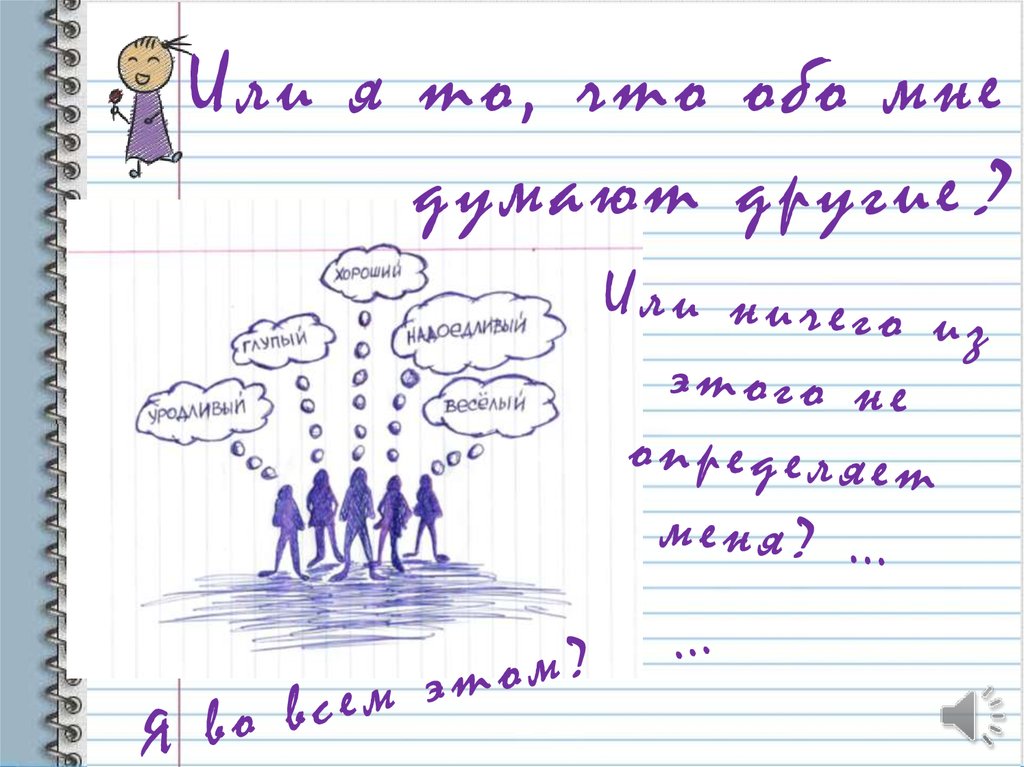 Или я то, что обо мне
думают другие?
ХОРОШИЙ
ГЛУПЫЙ
НАДОЕДЛИВЫЙ
УРОДЛИВЫЙ
ВЕСЁЛЫЙ
Или ничего из
этого не
определяет
меня? ...
...
Я во всем этом?